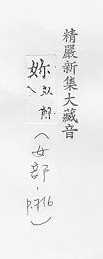 精嚴新集大藏音
妳
(女部，p.716)